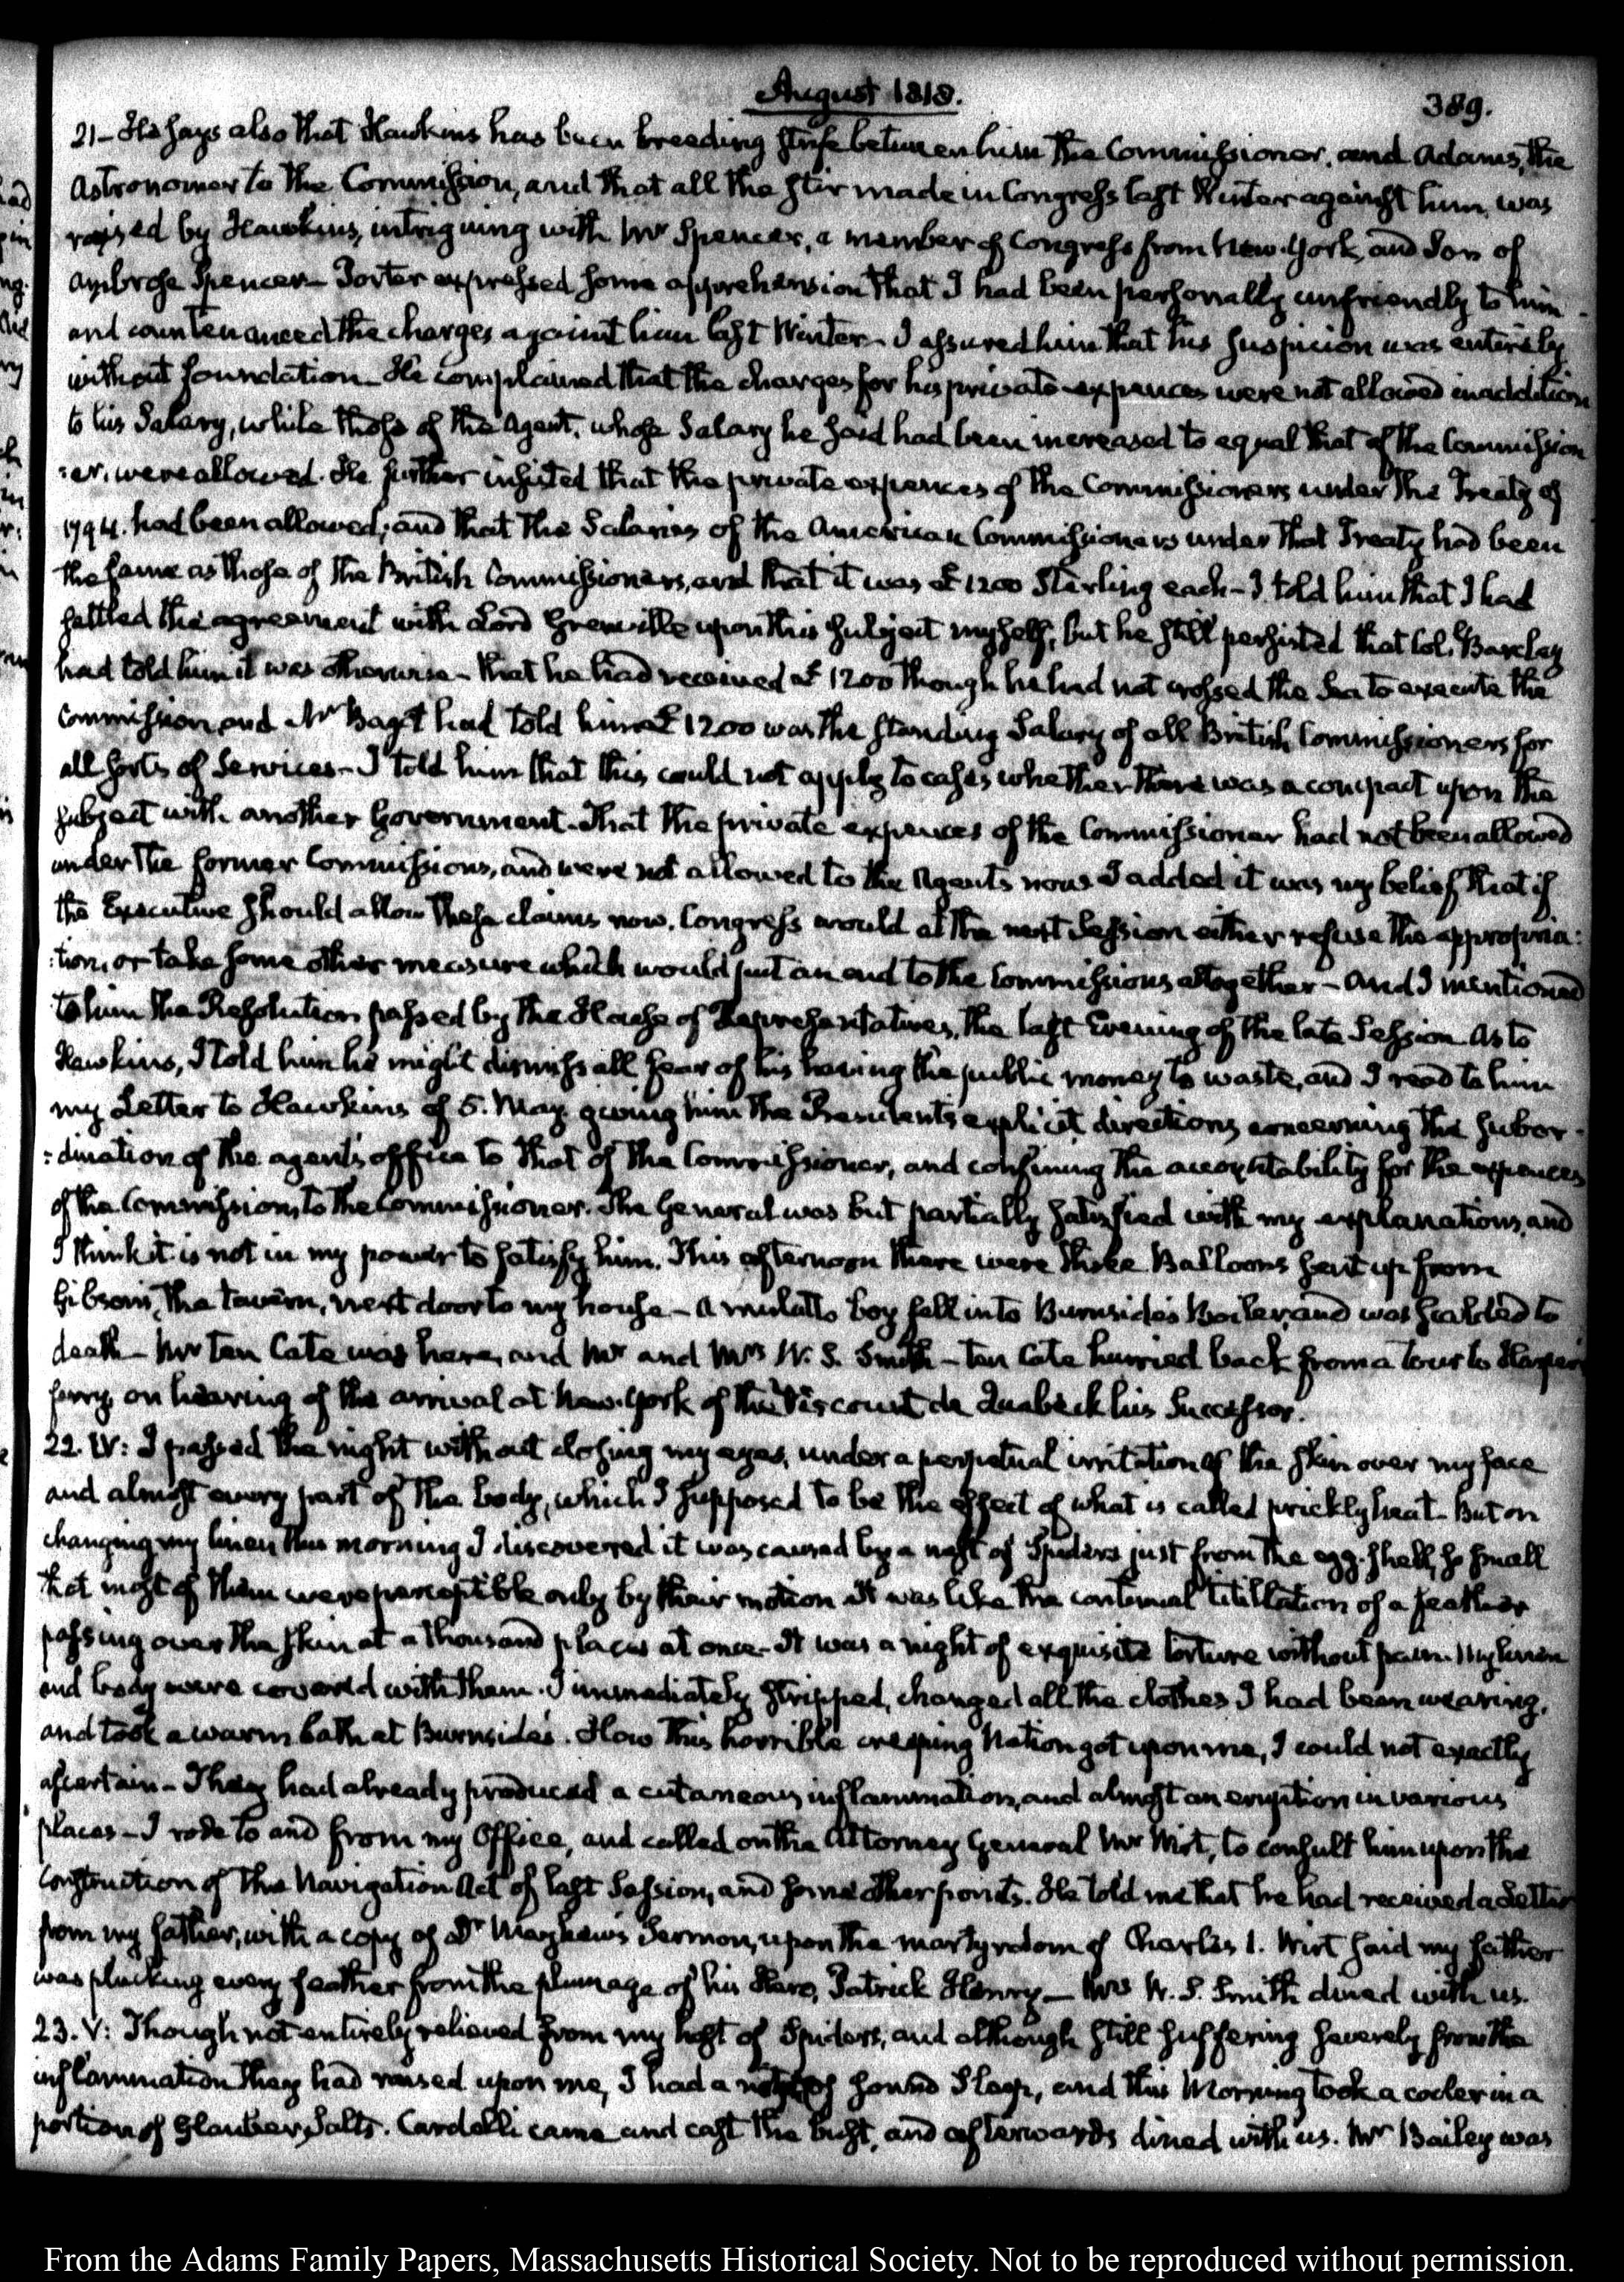 August 1818.
389.
21 - He says also that Hawkins has been breeding strife between him the Commissioner, and Adams, the
Astronomer to the Commission, and that all the stir made in Congress last Winter against him was
raised by Hawkins, intriguing with Mr Spencer, a member of Congress from New-York, and Son of
Ambrose Spencer - Porter expressed some apprehension that I had been personally unfriendly to him
and countenanced the charges against him last Winter - I assured him that his suspicion was entirely
without foundation - He complained that the charges for his private expences were not allowed in addition
to his Salary, while those of the Agent, whose Salary he said had been increased to equal that of the Commission
:er, were allowed. He further insisted that the private expences of the Commissioners under the Treaty of
1794. had been allowed; and that the Salaries of the American Commissioners under that Treaty had been
the same as those of the British Commissioners, and that it was £1200 Sterling each - I told him that I had
settled the agreement with Lord Grenville upon this subject myself, but he still persisted that Col. Barclay
had told him it was otherwise - that he had received £1200 though he had not crossed the Sea to execute the
Commission, and Mr Bagot had told him £1200 was the standing Salary of all British Commissioners for
all sorts of Services - I told him that this could not apply to cases whether there was a compact upon the
subject with another Government. That the private expences of the Commissioner had not been allowed
under the former Commissions, and were not allowed to the Agents now. I added it was my belief that if
the Executive should allow these claims now, Congress would at the next Session either refuse the appropria:
:tion, or take some other measure which would put an end to the Commissions altogether - And I mentioned
to him the Resolution passed by the House of Representatives, the last Evening of the late Session. As to
Hawkins, I told him he might dismiss all fear of his having the public money to waste, and I read to him
my Letter to Hawkins of 5. May, giving him the President's explicit directions concerning the subor-
:dination of the agent's office to that of the Commissioner, and confining the accountability for the expences
of the Commission, to the Commissioner. The General was but partially satisfied with my explanations, and
I think it is not in my power to satisfy him. This afternoon there were three Balloons sent up from
Gibson's, the tavern, next door to my house - A mulatto boy fell into Burnside's Boiler, and was scalded to
death - Mr Ten Cate was here, and Mr and Mrs W. S. Smith - Ten Cate hurried back from a tour to Harper's
ferry, on hearing of the arrival at New-York of the Viscount de Quabeck his Successor.
22. IV: I passed the night without closing my eyes, under a perpetual irritation of the skin over my face
and almost every part of the body, which I supposed to be the effect of what is called prickly heat - But on
changing my linen this morning I discovered it was caused by a nest of Spiders just from the egg-shell, so small
that most of them were perceptible only by their motion. It was like the continual titillation of a feather
passing over the skin at a thousand places at once - It was a night of exquisite torture without pain. My linen
and body were covered with them. I immediately stripped, changed all the clothes I had been wearing,
and took a warm bath at Burnside's. How this horrible creeping Nation got upon me, I could not exactly
ascertain - They had already produced a cutaneous inflammation, and almost an eruption in various
places - I rode to and from my Office, and called on the Attorney General Mr Wirt, to consult him upon the
construction of the Navigation Act of last Session, and some other points. He told me that he had received a Letter
from my father, with a copy of Dr Mayhew's Sermon, upon the martyrdom of Charles 1. Wirt said my father
was plucking every feather from the plumage of his Hero, Patrick Henry - Mrs W. S. Smith dined with us.
23. V: Though not entirely relieved from my host of Spiders, and although still suffering severely from the
inflammation they had raised upon me, I had a night of sound Sleep, and this Morning took a cooler in a
portion of Glauber, Salts. Cardelli came and cast the bust, and afterwards dined with us. Mr Bailey was
From the Adams Family Papers, Massachusetts Historical Society. Not to be reproduced without permission.